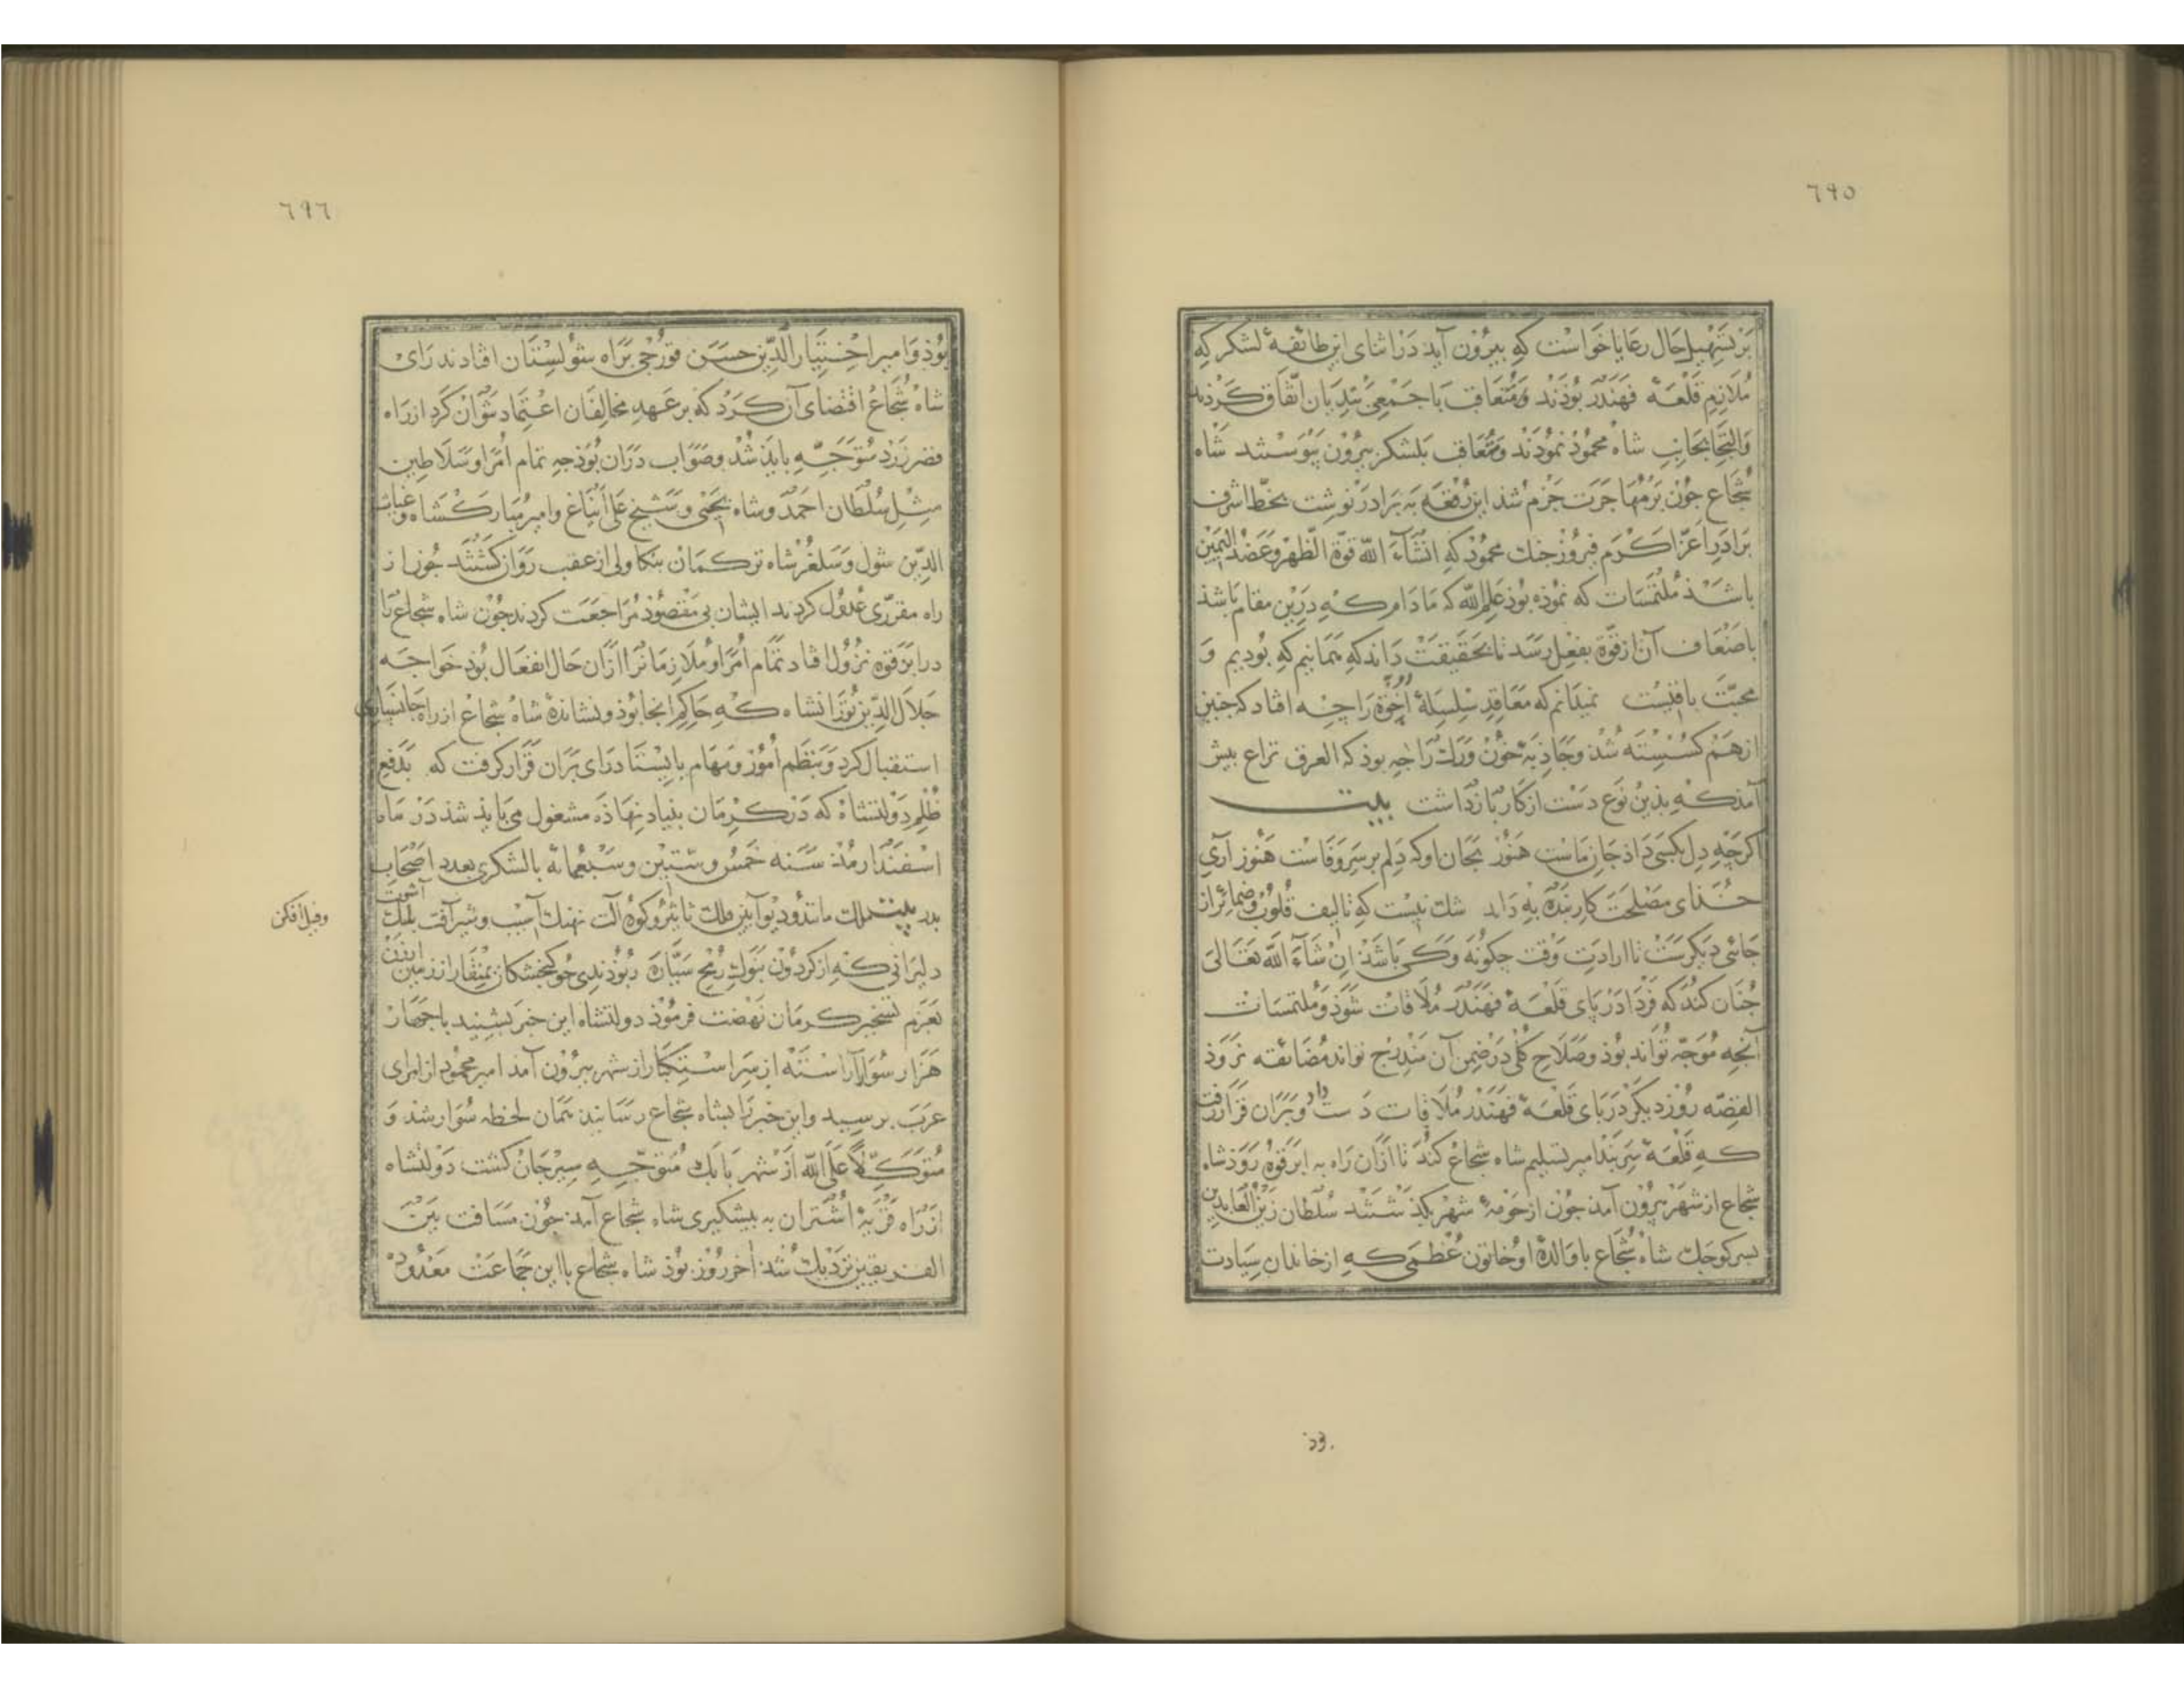 ٦٩٥
بر تسهیل حال رعایا خواست که بیرون آید در اثنای این طائفهٔ لشکر که
ملازم قلعهٔ فهندر بوذند و متعاقب با جمعی بندیان اتّفاق کردند
والتجا بجانب شاه محموذ نموذند و متعاقب بلشکر بیرون پیوستند شاه
شجاع جون بر مهاجرت جزم شد این رقعه به برادر نوشت بخطّ اشرف
برادر اعزّ اکرم فیروز جنك محموذ که انشآء الله قوّة الظّهر و عضد الیمین
باشذ ملتمسات که نموذه بوذ علم الله که مادام که درین مقام باشذ
باضعاف آن از قوّة بفعل رسد تا بحقیقت داند که همانیم که بودیم و
محبّت باقیست نمیدانم که معاقد سلسلهٔ اخوّة را چه افتاد که جنین
از هم کسسته شذ و جاذبهٔ خون ورك را جه بوذ که العرق نزاع بیش
آمذ که بذین نوع دست از کار باز داشت بیت
اکرچه دل بکسی داذ جان ماست هنوز بجان او که دلم بر سر وفاست هنوز آری
خدای مصلحت کار بنده به داند شك نیست که تالیف قلوب و ضمائر از
جائی دیکرست تا ارادت وقت جکونه و کی باشذ ان شآء الله تعالی
جنان کند که فردا در پای قلعهٔ فهندر ملاقات شوذ و ملتمسات
آنچه موجّه تواند بوذ و صلاح کلّی در ضمن آن مندرج تواند مضائقه نروذ
القصّه روز دیکر در پای قلعهٔ فهندر ملاقات دست داد و بران قرار رفت
که قلعهٔ سربند امیر تسلیم شاه شجاع کند تا ازان راه به ابرقوه روذ شاه
شجاع از شهر بیرون آمذ جون از حومهٔ شهر بکذشتند سلطان زین العابدین
بسر کوجك شاه شجاع با والدهٔ او خاتون عظمی که از خاندان سیادت
٦٩٦
بوذ و امیر اختیار الدّین حسن قورجی براه شولستان افتادند رای
شاه شجاع اقتضای آن کرد که بر عهد مخالفان اعتماد نتوان کرد از راه
قصر زرد متوجّه بایذ شذ و صواب دران بوذ جه تمام امرا و سلاطین
مثل سلطان احمد و شاه یحیی و شیخ علی ایناغ و امیر مبارکشاه و غیاث
الدّین شول و سلغر شاه ترکمان بنکاولی از عقب روان کشتند جون از
راه مقرّری عدول کردند ایشان بی مقصوذ مراجعت کردند جون شاه شجاع را
در ابرقوه نزول افتاد تمام امرا و ملازمانرا ازان حال انفعال بوذ خواجه
جلال الدّین تورانشاه که حاکم انجا بوذ و نشاندهٔ شاه شجاع از راه جانسپاری
استقبال کرد و بنظم امور و مهام بایستاد رای بران قرار کرفت که بدفع
ظلم دولتشاه که در کرمان بنیاد نهاذه مشغول می باید شذ در ماه
اسفندارمذ سنه خمس و ستّین و سبعمائه با لشکری بعدد اصحاب
بدر بیت ملك مانند و دیو آیین فلك تاثیر و کوه آلت نهنك آسیب و شیر آفت بلنك آشوب
و فیل افکن
دلیرانی که از کردون بنوك رمح سیّاره ربوذندی جو کنجشکان بمنقار از زمین ارزن
بعزم تسخیر کرمان نهضت فرموذ دولتشاه این خبر بشنید با جهار
هزار سوار آراسته از سر استکبار از شهر بیرون آمد امیر محمود از امرای
عرب برسید و این خبر را بشاه شجاع رسانید همان لحظه سوار شد و
متوکّلاً علی الله از شهر بابك متوجّه سیرجان کشت دولتشاه
از راه قریهٔ اشتران به بیشکیری شاه شجاع آمذ جون مسافت بین
الفریقین نزدیك شذ آخر روز بوذ شاه شجاع با این جماعت معدود